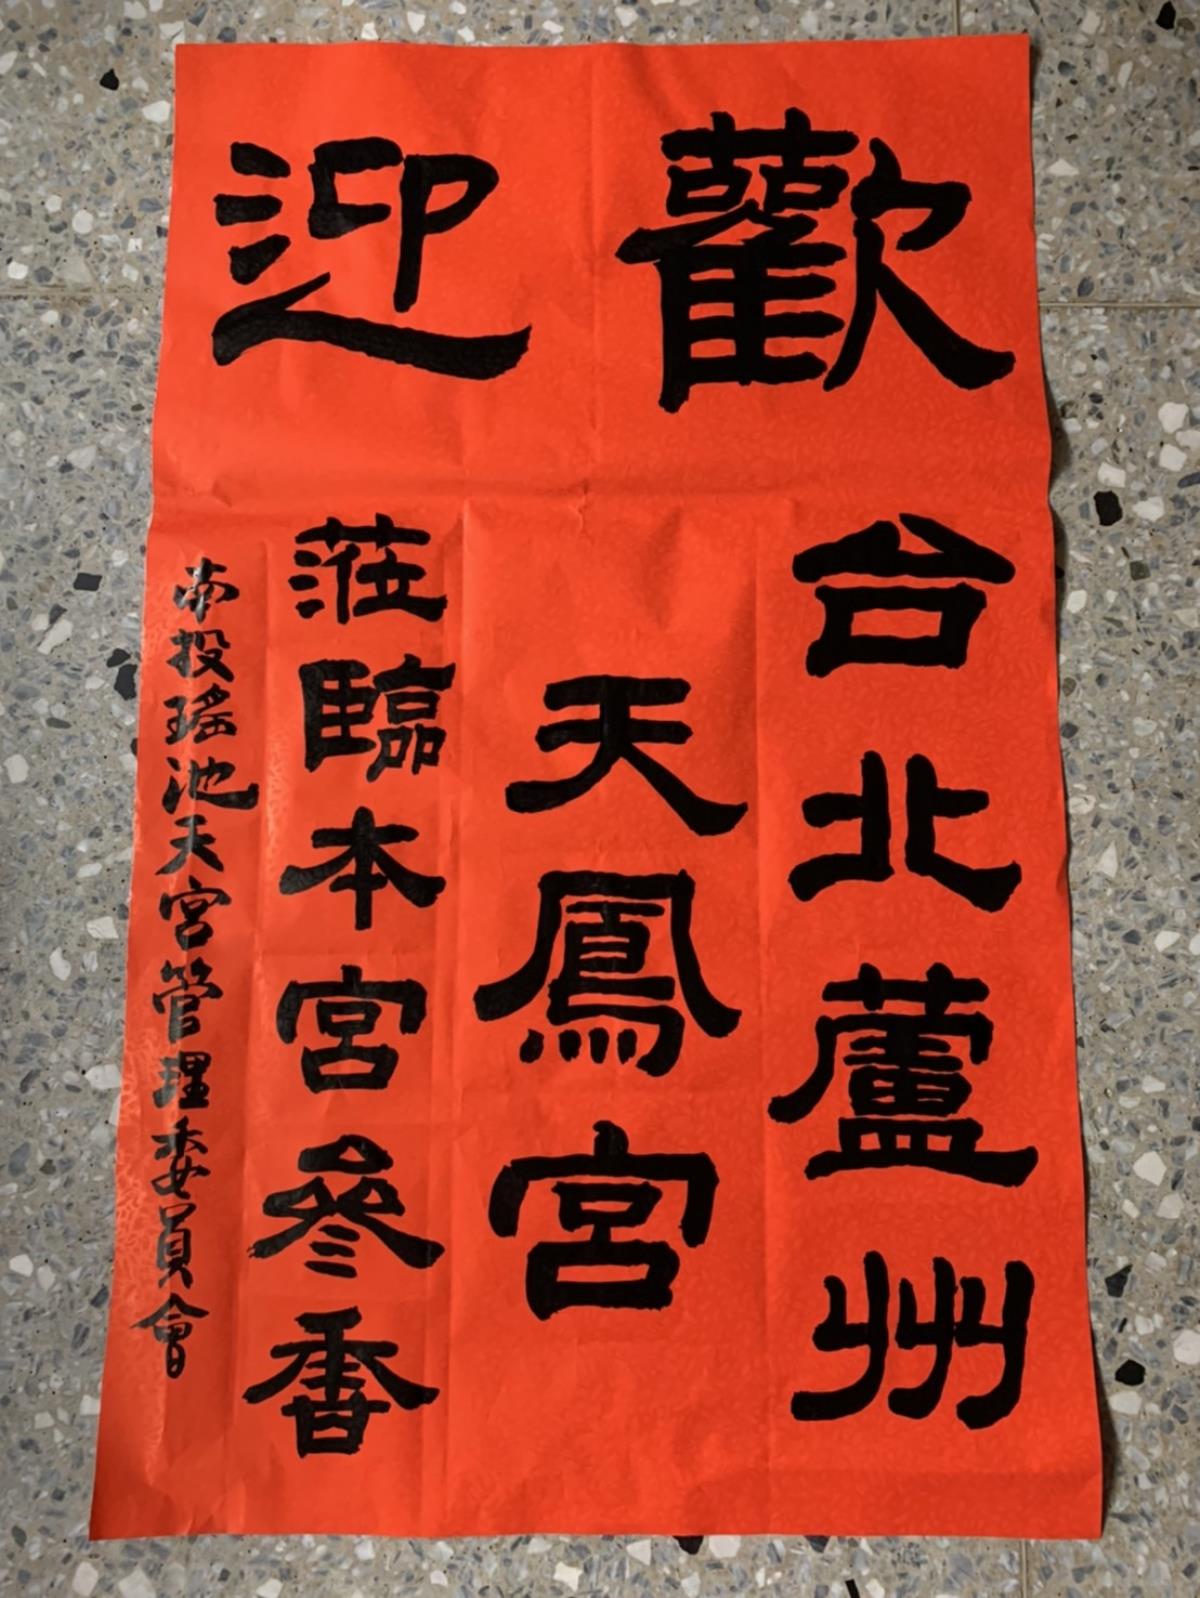 歡迎
台北蘆州
天鳳宮
蒞臨本宮參香
南投瑤池天宮管理委員會